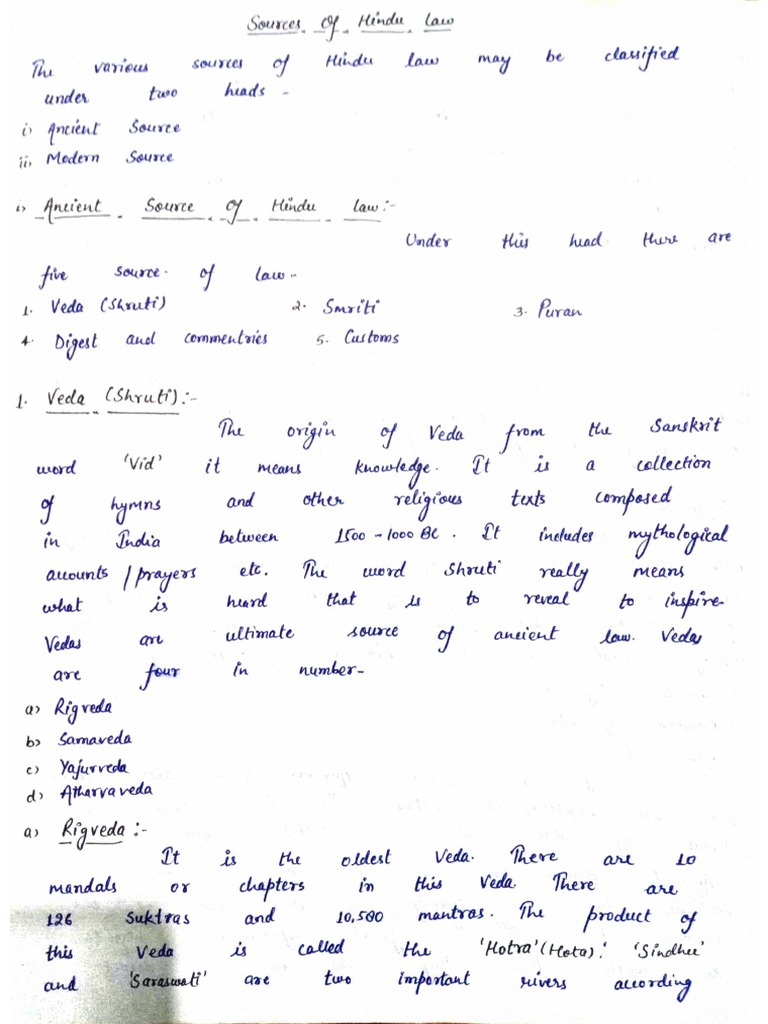 Sources Of Hindu Law
The various sources of Hindu law may be classified
under two heads -
i) Ancient Source
ii, Modern Source
i) Ancient Source Of Hindu law:-
Under this head there are
five source of law -
1. Veda (Shruti) 2. Smriti 3. Puran
4. Digest and commentries 5. Customs
1. Veda (Shruti):-
The origin of Veda from the Sanskrit
word 'Vid' it means knowledge. It is a collection
of hymns and other religious texts composed
in India between 1500 - 1000 BC. It includes mythological
accounts / prayers etc. The word Shruti really means
what is heard that is to reveal to inspire.
Vedas are ultimate source of ancient law. Vedas
are four in number -
a) Rigveda
b) Samaveda
c) Yajurveda
d) Atharvaveda
a) Rigveda :-
It is the oldest Veda. There are 10
mandals or chapters in this Veda. There are
126 Suktras and 10,580 mantras. The product of
this Veda is called the 'Hotra' (Hota).' 'Sindhu'
and 'Saraswati' are two important rivers according